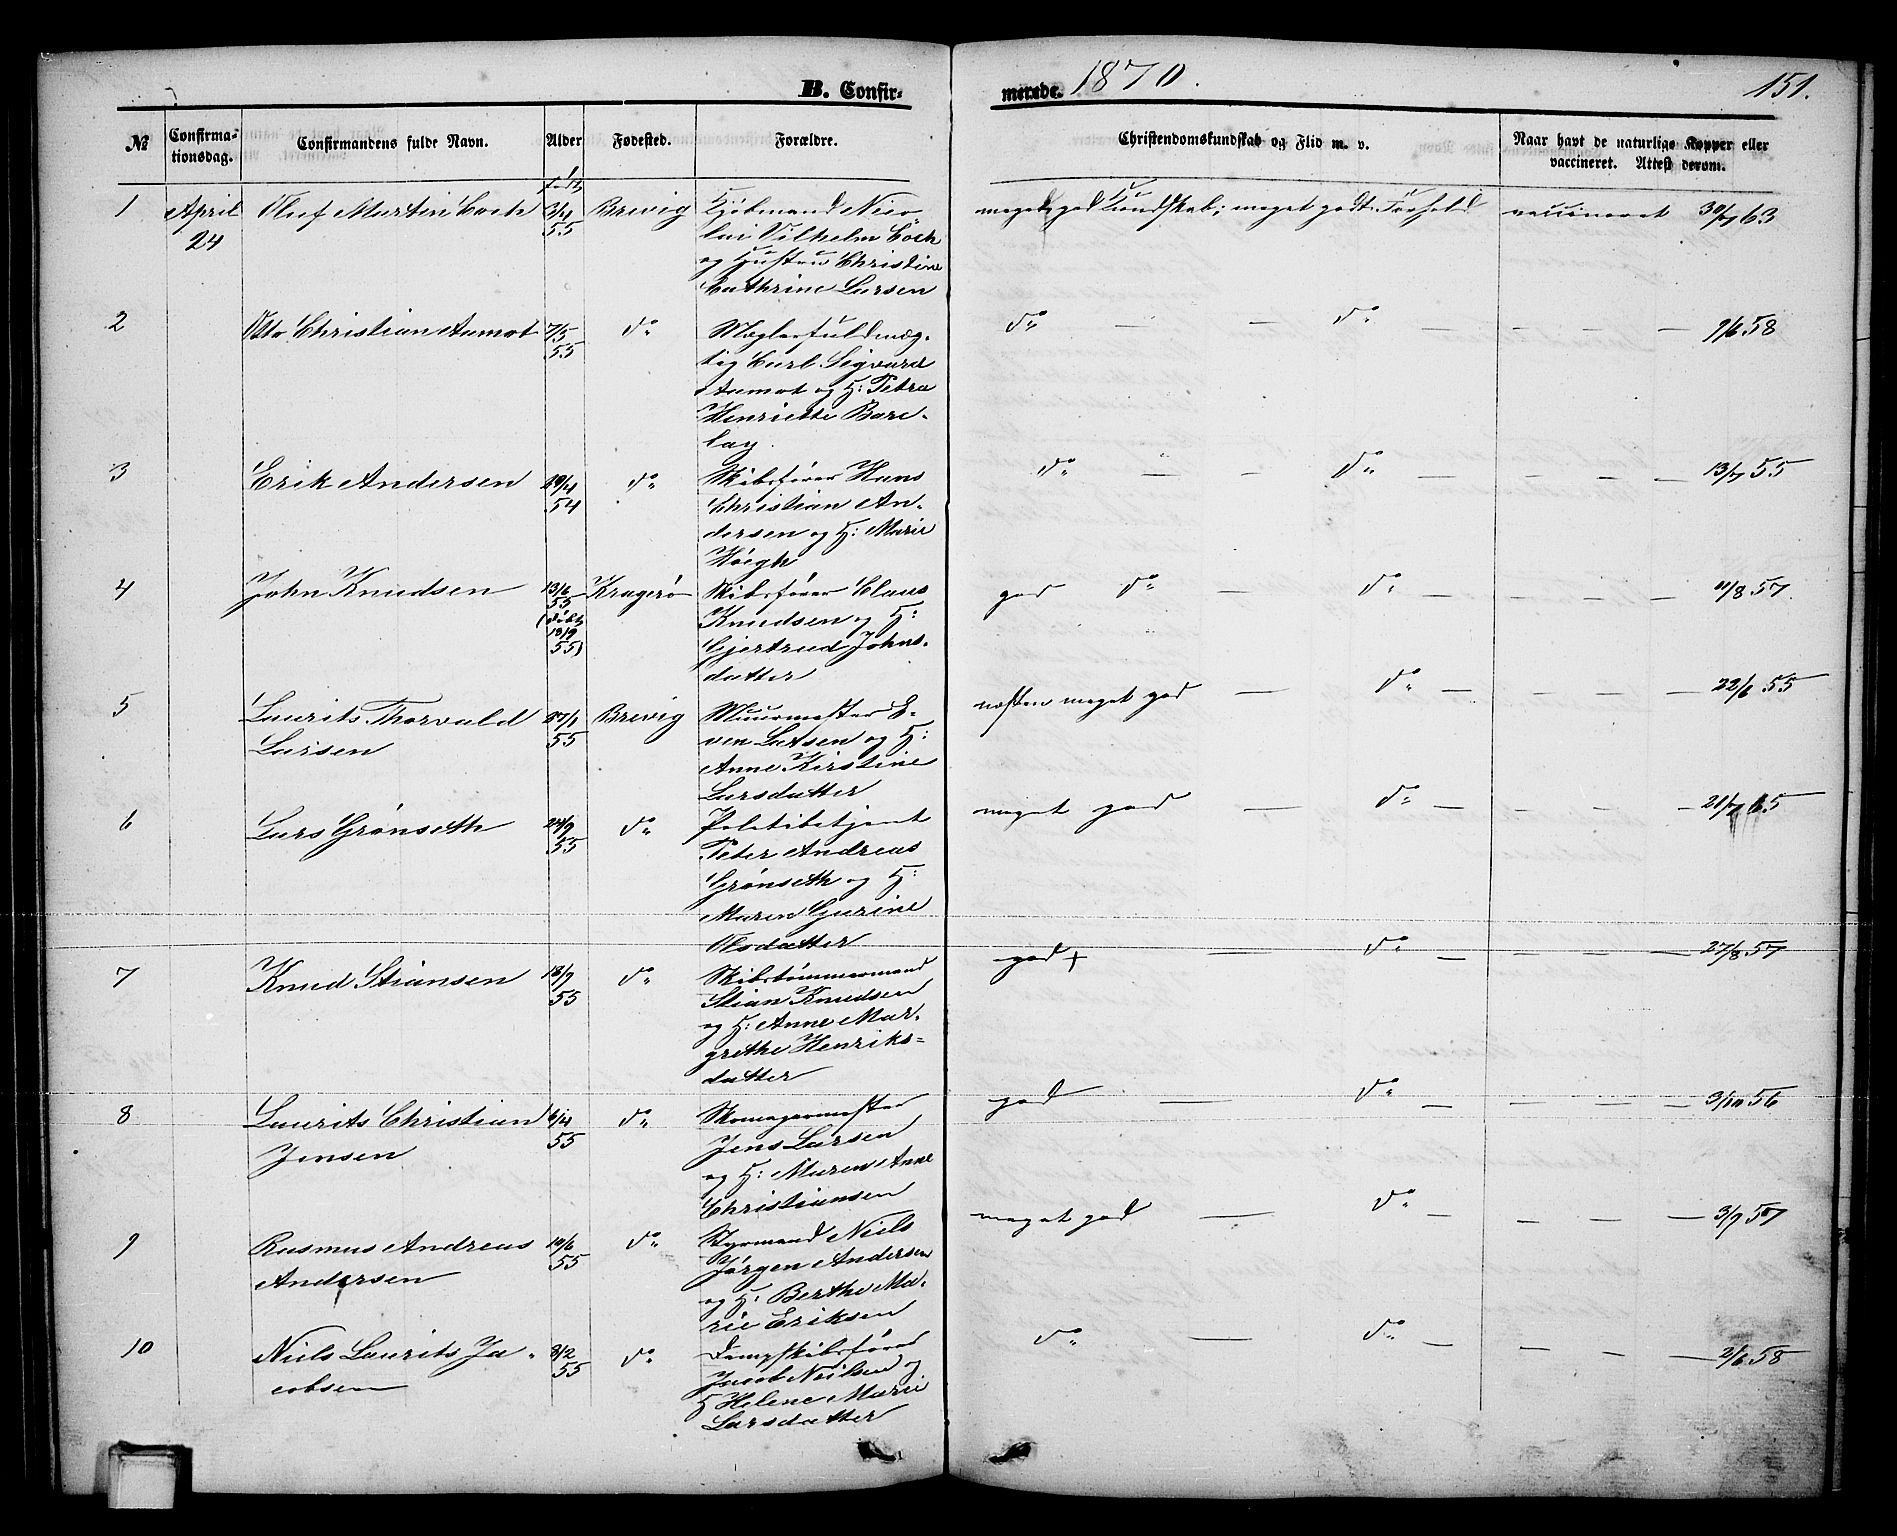 B. Confirmerede. 1870. 151.
№ Confirmationsdag. Confirmandens fulde Navn. Alder Fødested. Forældre. Christendomskundskab og Flid m. v. Naar havt de naturlige Kopper eller vaccineret. Attest derom.
1 April 24 Oluf Martin Coch født 3/4 55 Brevig Kjøbmand Nico-
lai Vilhelm Coch
og Hustru Christine
Cathrine Larsen
meget god Kundskab; meget godt Forhold vaccineret 63
2 Otto Christian Aamot 7/5 55 do Mæglerfuldmæg-
tig Carl Sigvard
Aamot og H: Petra
Henriette Barc-
lay.
do — — do — — — — 9/6 58
3 Erik Andersen 54 do Skibsfører Hans
Christian An-
dersen og H: Marie
Høegh
do — — do — — — — 13/7 55
4 John Knudsen 13/6 55 (døbt 55) Kragerø Skibsfører Claus
Knudsen og H:
Gjertrud Johns-
datter
god do — do — — — — 11/8 57.
5 Laurits Thorvald
Larsen 27/1 55 Brevig Muurmester E-
ven Larsen og H:
Anne Kirstine
Larsdatter
næsten meget god — do — — — — 22/6 55
6 Lars Grønseth 24/9 55 do Politibetjent
Peter Andreas
Grønseth og H:
Maren Gurine
Olsdatter
meget god — do — — — — 65
7 Knud Stiansen 55 do Skibstømmermand
Stian Knudsen
og H: Anne Mar-
grethe Henriks-
datter
god + — do — — — — 27/8 57
8 Laurits Christian
Jensen 6/4 55 do Skomagermester
Jens Larsen
og H: Maren Anne
Christiansen
god — do — — — — 3/10 56
9 Rasmus Andreas
Andersen 10/6 55 do Styrmand Niels
Jørgen Andersen
og H: Berthe Ma-
rie Eriksen
meget god — do — — — — 57
10 Niels Laurits Ja-
cobsen 3/2 55 do Dampskibsfører
Jacob Neilsen og
H Helene Marie
Larsdatter
do — do — — — — 2/6 58